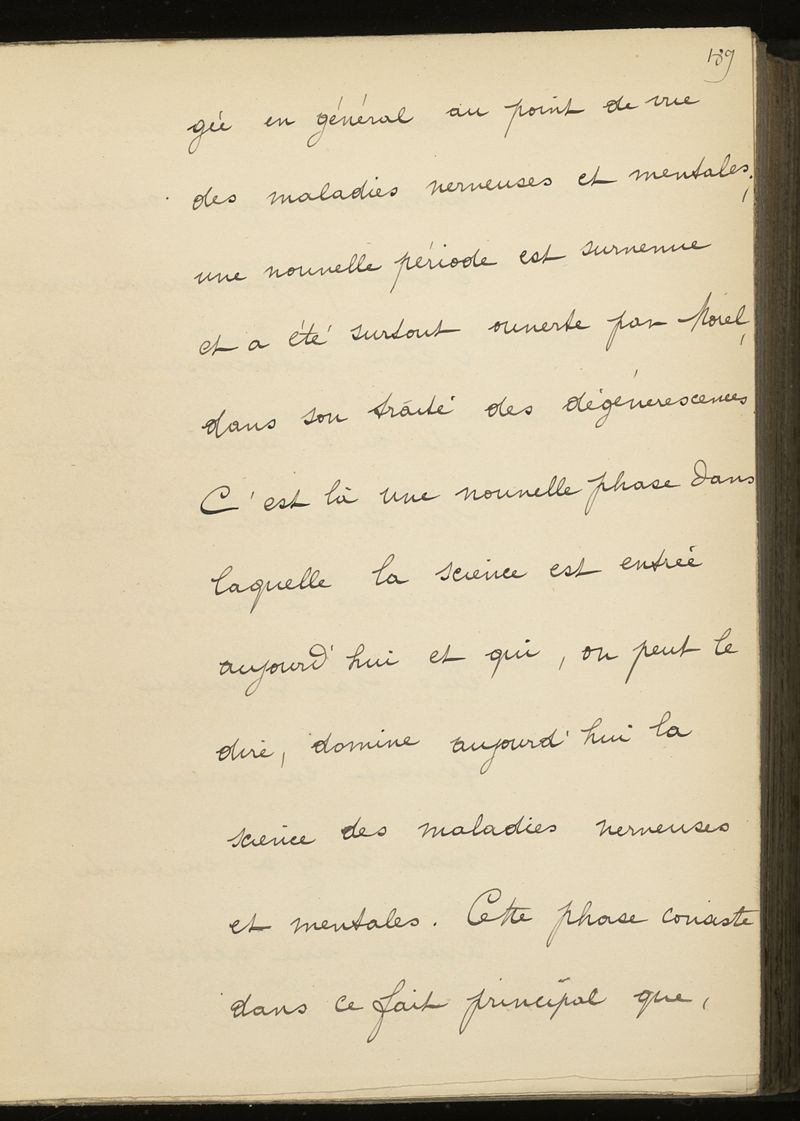 189
gée en général au point de vue
des maladies nerveuses et mentales,
une nouvelle période est survenue
et a été surtout ouverte par Morel,
dans son traité des dégénérescences.
C'est là une nouvelle phase dans
laquelle la science est entrée
aujourd'hui et qui, on peut le
dire, domine aujourd'hui la
science des maladies nerveuses
et mentales. Cette phase consiste
dans ce fait principal que,